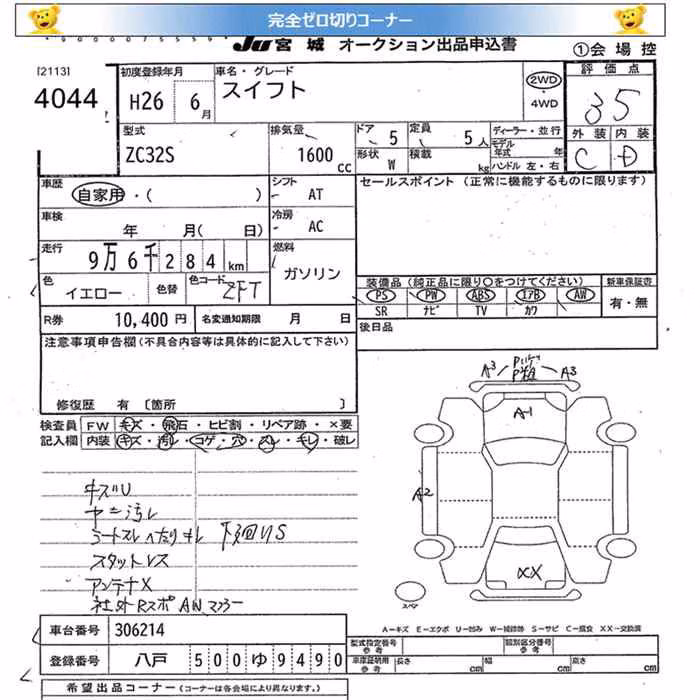 完全ゼロ切りコーナー
JU 宮城 オークション出品申込書
①会場控
[2113]
4044
初度登録年月
H26 6月
車名・グレード
スイフト
2WD
・4WD
評価点
3.5
外装 内装
C D
型式
ZC32S
排気量
1600cc
ドア 5
定員 5人
形状 W
積載 kg
ディーラー・並行
モデル年式 年
ハンドル 左・右
車歴
自家用・( )
シフト
AT
車検
年 月( 日)
冷房
AC
走行
9万6千284km
燃料
ガソリン
色
イエロー
色替
色コード
ZFT
R券
10,400円
名変通知期限 月 日
セールスポイント (正常に機能するものに限ります)
装備品(純正品に限り○をつけてください)
PS PW ABS エアB AW
SR ナビ TV カワ
新車保証書
有・無
後日品
注意事項申告欄(不具合内容等は具体的に記入して下さい)
修復歴 有 〔箇所 〕
検査員記入欄
FW キズ・飛石・ヒビ割・リペア跡・×要
内装 キズ・汚れ・コゲ・穴・スレ・キレ・破レ
キズU
ヤニ汚レ
シートスレヘたりキレ 下回りS
スタットレス
アンテナX
社外RスポAWマフラー
A3 A3
A-1
A2
XX
スペア
A-キズ E-エクボ U-凹み W-補修跡 S-サビ C-腐食 XX-交換済
車台番号 306214
登録番号 八戸 500ゆ9490
型式指定番号 参考
類別区分番号 参考
車庫証明用 参考
長さ cm 幅 cm 高さ cm
希望出品コーナー (コーナーは各会場により異なります。)